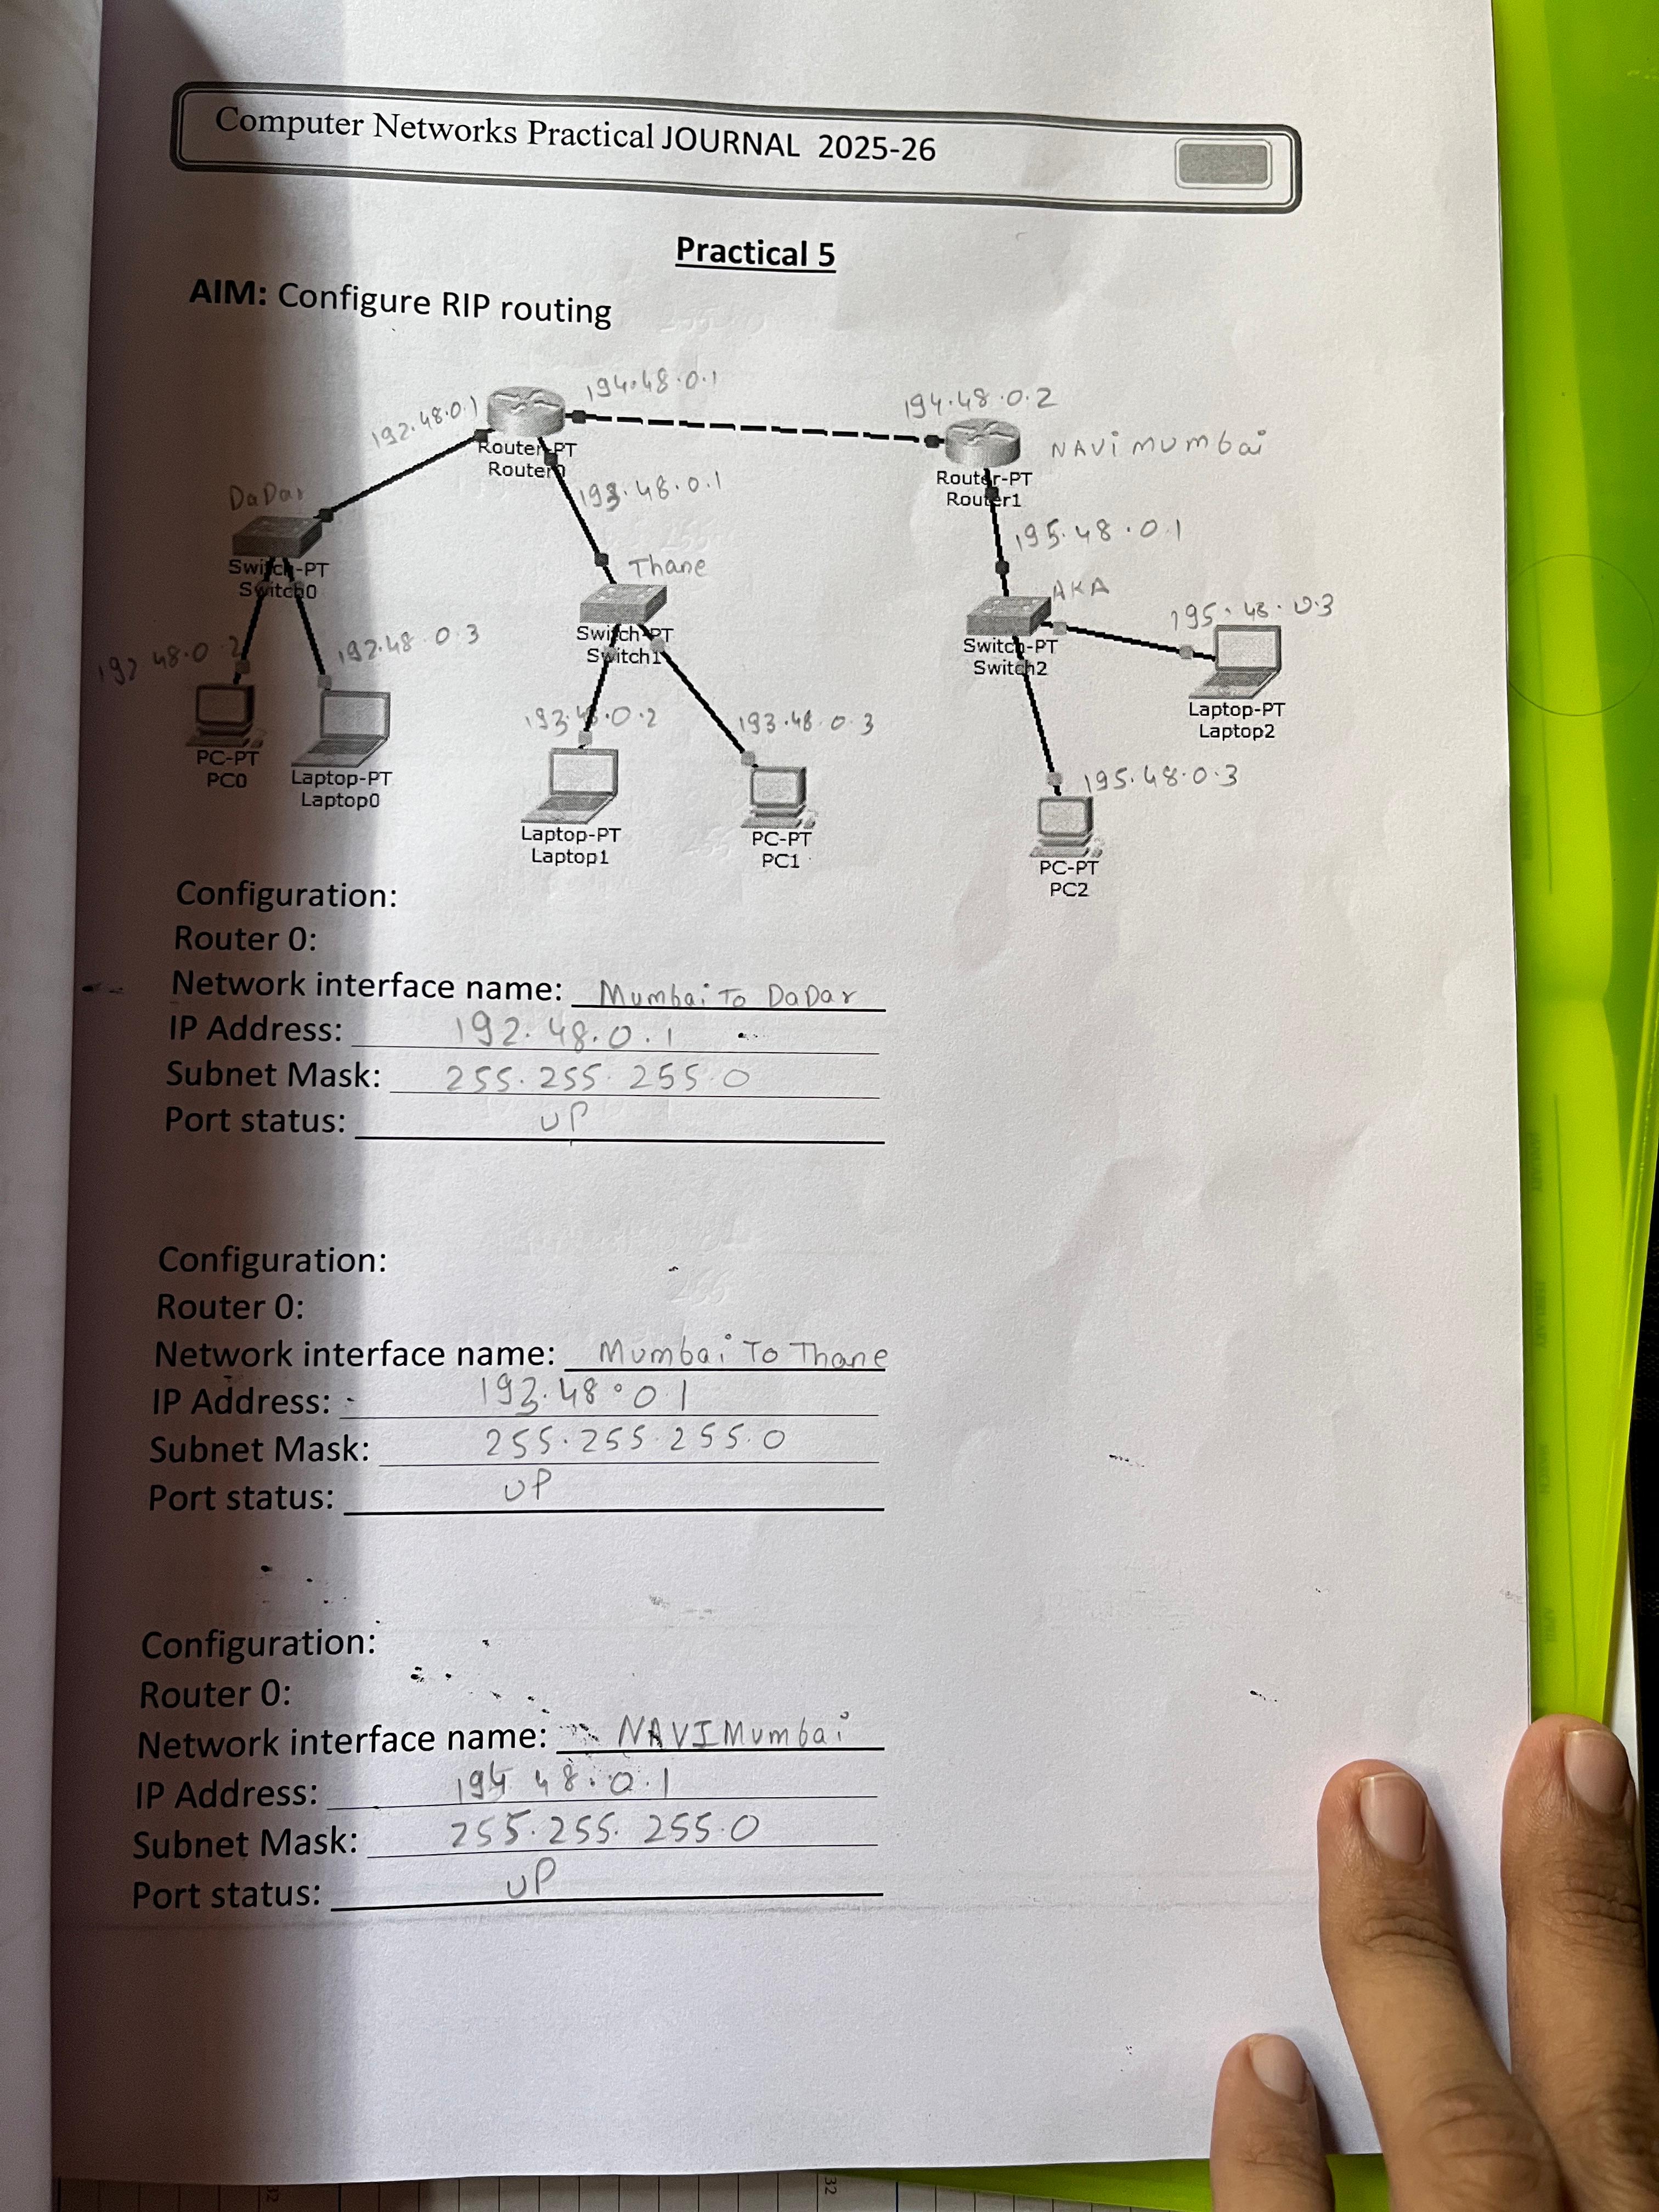 Computer Networks Practical JOURNAL 2025-26
Practical 5
AIM: Configure RIP routing
194.48.0.1
192.48.0.1
194.48.0.2
Router-PT
Router0
NAVi mumbai
Router-PT
Router1
193.48.0.1
195.48.0.1
DaDar
Switch-PT
Switch0
Thane
Switch-PT
Switch1
AKA
Switch-PT
Switch2
195.48.0.3
192 48.0.2
192.48 0.3
193.48.0.2
193.48.0.3
Laptop-PT
Laptop2
PC-PT
PC0
Laptop-PT
Laptop0
195.48.0.3
Laptop-PT
Laptop1
PC-PT
PC1
PC-PT
PC2
Configuration:
Router 0:
Network interface name: Mumbai To DaDar
IP Address: 192.48.0.1
Subnet Mask: 255.255.255.0
Port status: UP
Configuration:
Router 0:
Network interface name: Mumbai To Thane
IP Address: 193.48.0.1
Subnet Mask: 255.255.255.0
Port status: UP
Configuration:
Router 0:
Network interface name: NAVI Mumbai
IP Address: 194 48.0.1
Subnet Mask: 255.255.255.0
Port status: UP
32